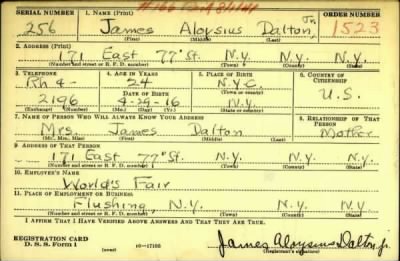 SERIAL NUMBER 1. NAME (Print) ORDER NUMBER
256 James Aloysius Dalton, Jr. 1523
(First) (Middle) (Last)
2. ADDRESS (Print)
171 East 77th St. N.Y. N.Y. N.Y.
(Number and street or R. F. D. number) (Town) (County) (State)
3. TELEPHONE 4. AGE IN YEARS 5. PLACE OF BIRTH 6. COUNTRY OF CITIZENSHIP
Rh 4- 24 N.Y.C.
DATE OF BIRTH (Town or county) U.S.
2196 4-24-16 N.Y.
(Exchange) (Number) (Mo.) (Day) (Yr.) (State or country)
7. NAME OF PERSON WHO WILL ALWAYS KNOW YOUR ADDRESS 8. RELATIONSHIP OF THAT PERSON
Mrs. James Dalton Mother
(Mr., Mrs., Miss) (First) (Middle) (Last)
9. ADDRESS OF THAT PERSON
171 East 77th St. N.Y. N.Y. N.Y.
(Number and street or R. F. D. number) (Town) (County) (State)
10. EMPLOYER'S NAME
World's Fair
11. PLACE OF EMPLOYMENT OR BUSINESS
Flushing N.Y. N.Y.
(Number and street or R. F. D. number) (Town) (County) (State)
I AFFIRM THAT I HAVE VERIFIED ABOVE ANSWERS AND THAT THEY ARE TRUE.
REGISTRATION CARD
D. S. S. Form 1 (over) 16-17105 James Aloysius Dalton, jr.
(Registrant's signature)